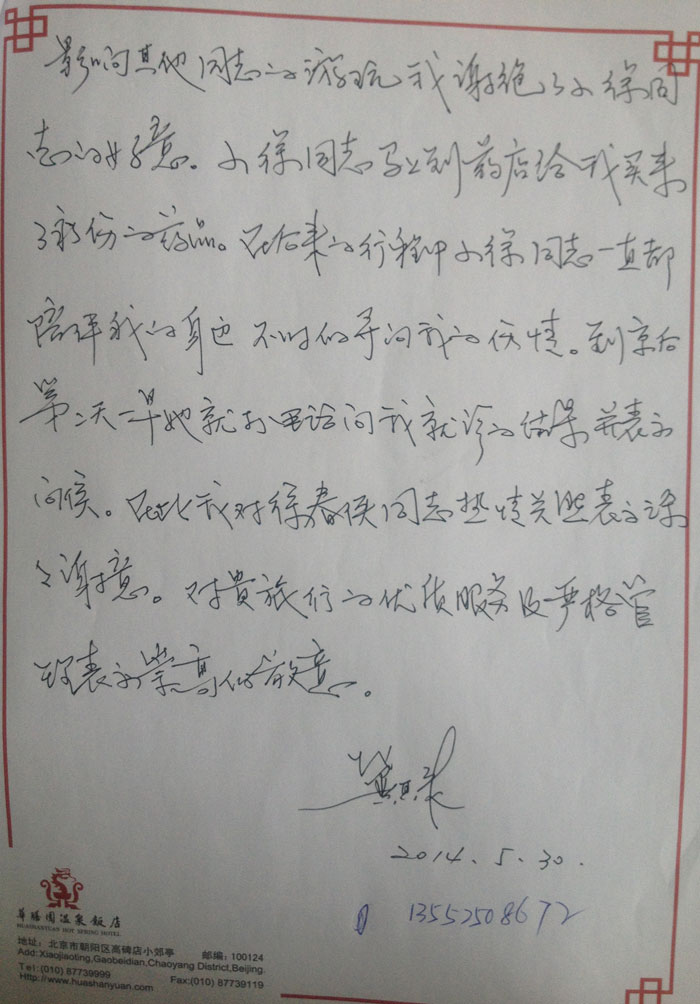 影响其他同志的游玩我谢绝了小徐同
志的好意。小徐同志马上到药店给我买来
了部份的药品。在后来的行程中小徐同志一直都
陪伴我的身边 不时的寻问我的伤情。到京后
第二天一早她就打电话问我就诊的结果并表示
问候。在此我对徐春侠同志热情关照表示深
深谢意。对贵旅行的优质服务及严格管
理表示崇高的敬意。
2014.5.30.
13552508672
華膳園温泉飯店
HUASHANYUAN HOT SPRING HOTEL
地址: 北京市朝阳区高碑店小郊亭 邮编: 100124
Add: Xiaojiaoting,Gaobeidian,Chaoyang District,Beijing.
Tel:(010) 87739999 Fax:(010) 87739119
Http://www.huashanyuan.com